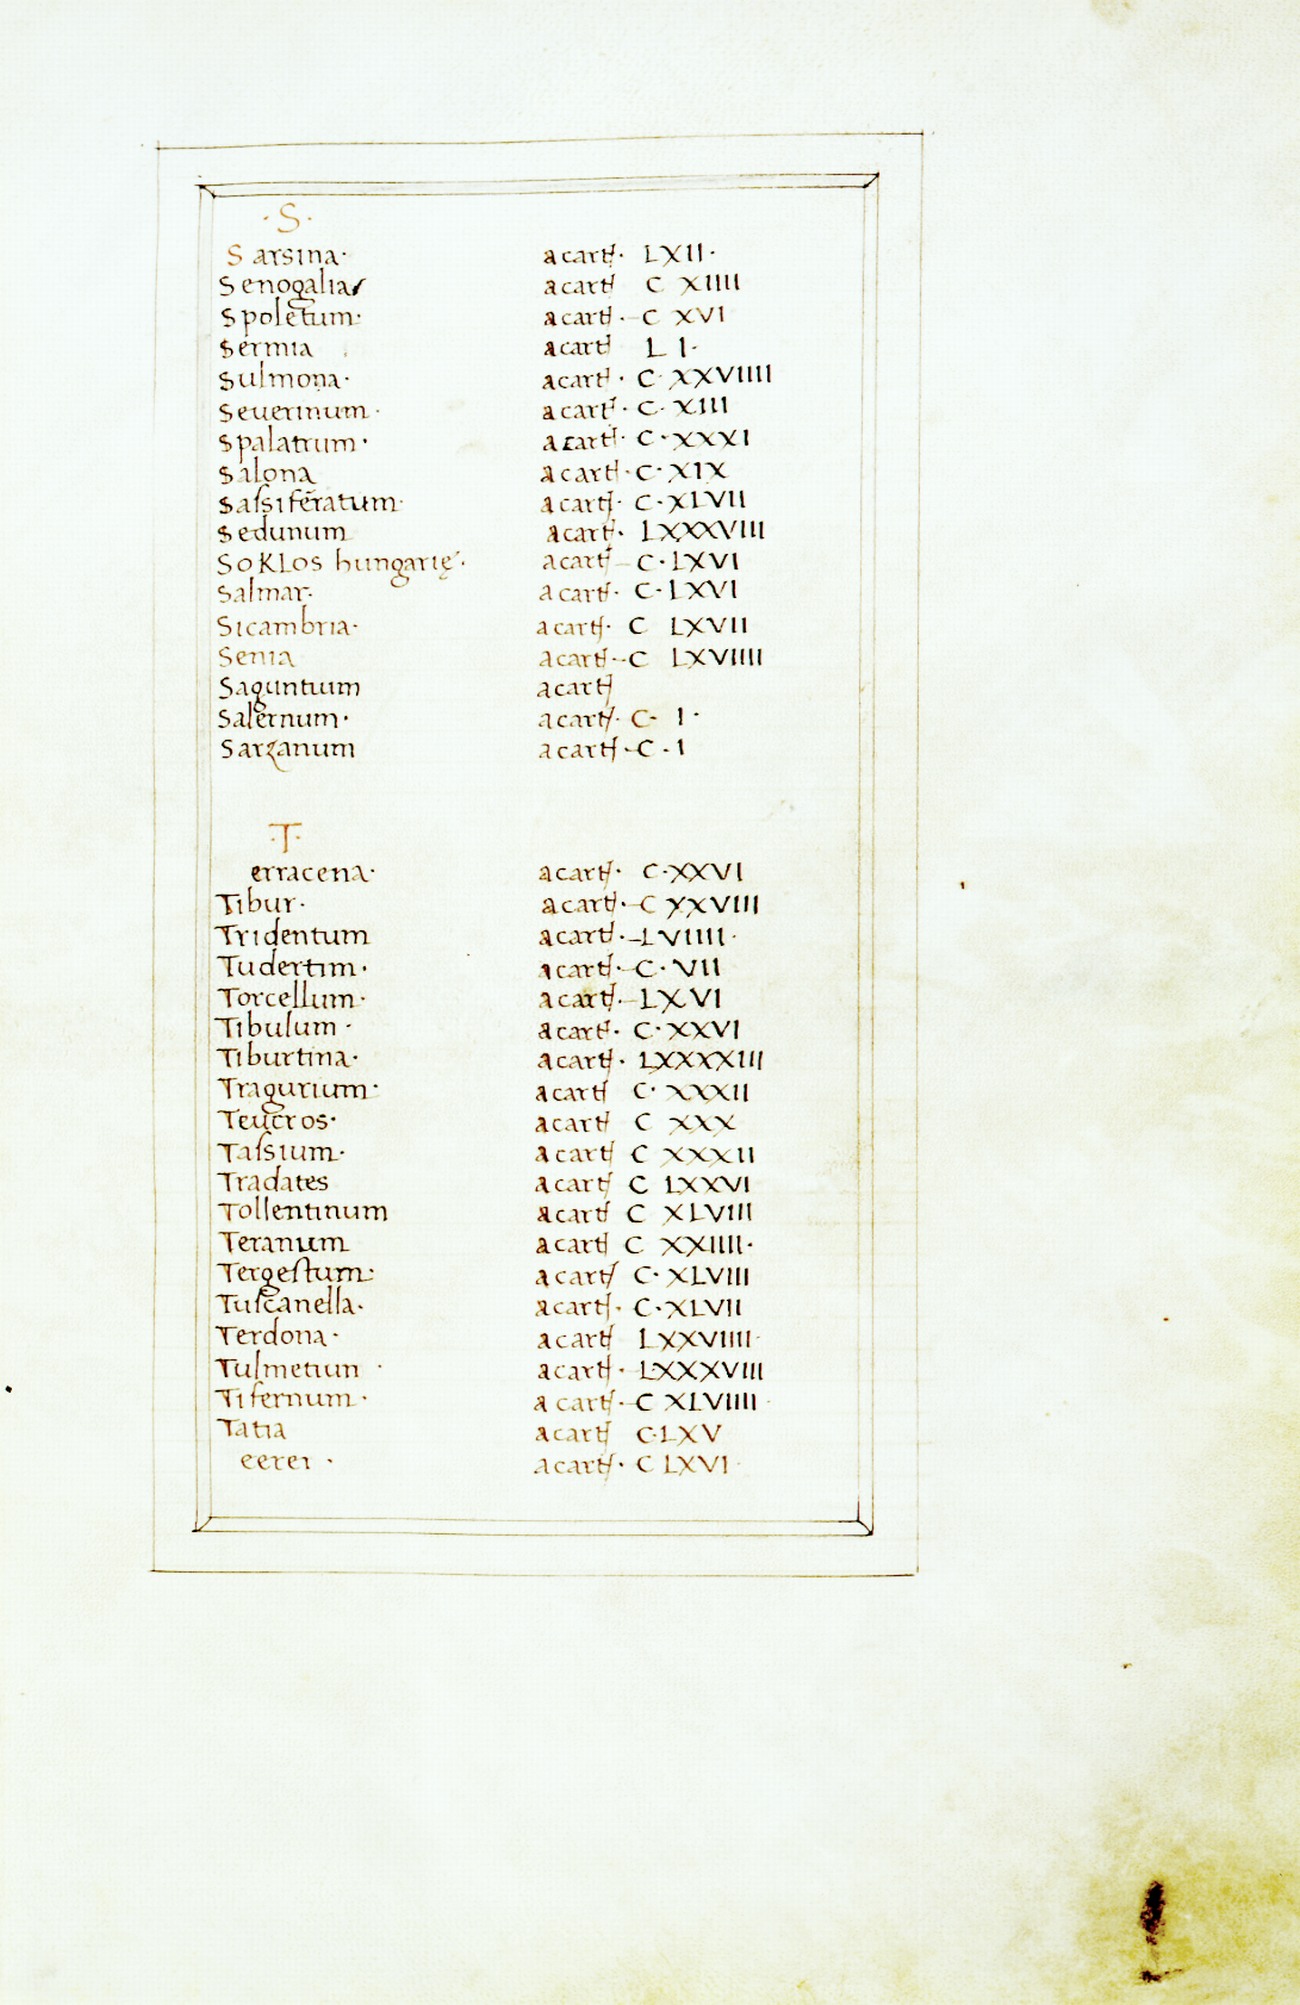 ·S·
Sarsina· acart· LXII·
Senogalia acart C XIIII
Spoletum· acart· C XVI
Sermia acart L I·
Sulmona· acart· C· XXVIIII
Seuerinum· acart· C· XIII
Spalatrum· acart· C·XXXI
Salona acart·C·XIX
Saſſiferatum· acart· C·XLVII
Sedunum acart· LXXXVIII
SoKLos hungarię· acart C·LXVI
Salmar· acart· C·LXVI
Sicambria· acart· C LXVII
Senia acart·C LXVIIII
Saguntium acart
Salernum· acart· C· I·
Sarzanum acart·C·I
·T·
erracena· acart· C·XXVI
Tibur· acart·C XXVIII
Tridentum acart·LVIIII·
Tudertim· acart·C·VII
Torcellum· acart·LXVI
Tibulum· acart· C·XXVI
Tiburtina· acart· LXXXXIII
Tragurium· acart C· XXXII
Teucros· acart C XXX
Taſſium· acart C XXXII
Tradates acart C LXXVI
Tollentinum acart C XLVIII
Teranum acart C XXIIII·
Tergeſtum· acart C·XLVIII
Tuſcanella· acart· C·XLVII
Terdona· acart LXXVIIII·
Tulmetiun · acart· LXXXVIII
Tifernum· acart·C XLVIIII·
Tatia acart C·LXV
eerei · acart· C LXVI·